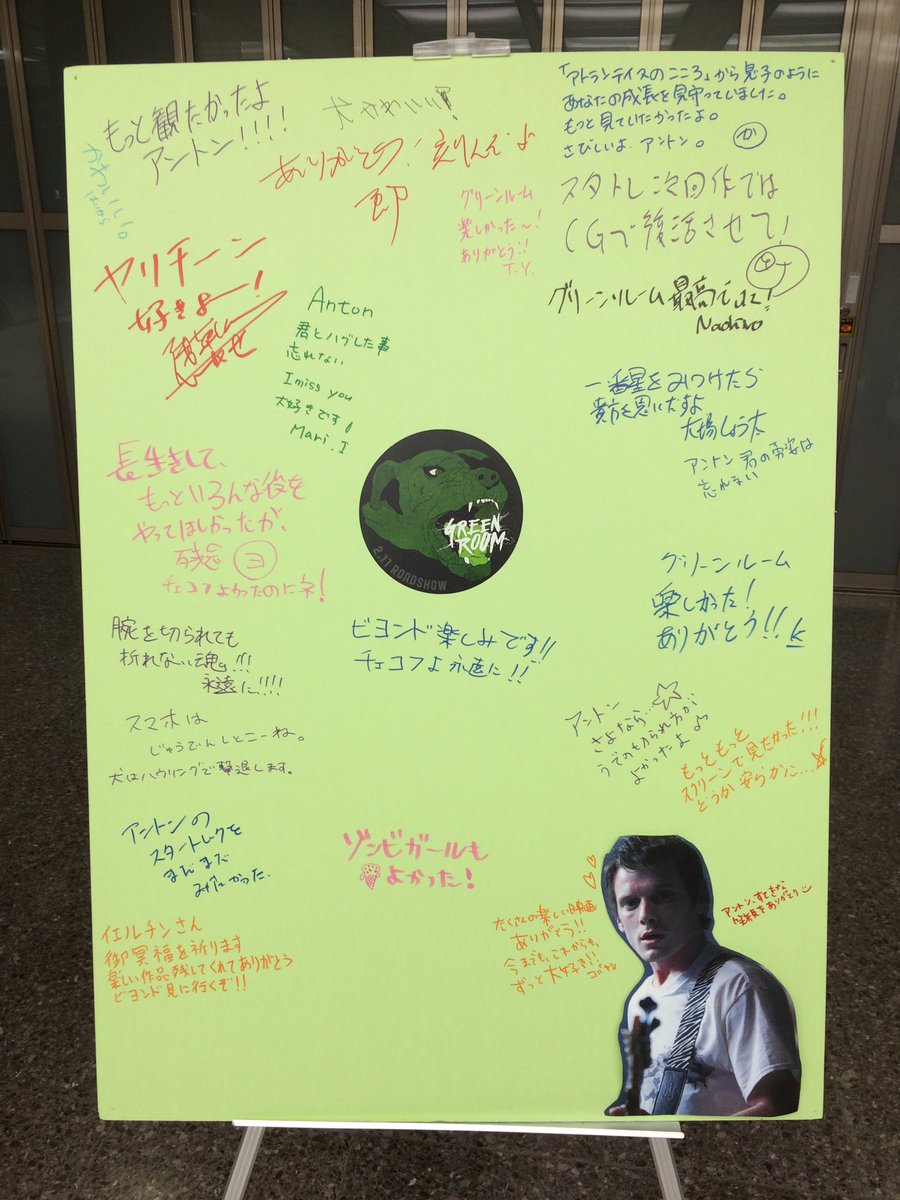 もっと観たかったよ
アントン!!!!
かわいい。
犬かわいい!
ありがとう!
「アトランティスのこころ」から息子のように
あなたの成長を見守っていました。
もっと見ていたかったよ。
さびしいよ、アントン。 か
グリーンルーム
楽しかった〜!
ありがとう!!
T.Y.
スタトレ次回作では
CGで復活させて!
ヤリチーン
好きよー!
グリーンルーム最高でした!
Naohiro
Anton
君とハグした事
忘れない
I miss you
大好きです!
Mari.I
一番星をみつけたら
貴方を思いだすよ
大場しょう太
アントン君の勇姿は
忘れない
長生きして、
もっといろんな役を
やってほしかったが、
残念 ヨ
チェコフよかったのにネ!
GREEN
ROOM
2.11 ROADSHOW
グリーンルーム
楽しかった!
ありがとう!!
腕を切られても
折れない魂。!!!
永遠に!!!!
ビヨンド楽しみです!!
チェコフよ永遠に!!
スマホは
じゅうでんしとこーね。
犬はハウリングで撃退します。
アントン
さよなら...☆
うでの切られ方が
よかったよ
もっともっと
スクリーンで見たかった!!!
どうか安らかに...☆
アントンの
スタートレックを
まだまだ
みたかった.
ゾンビガールも
よかった!
イェルチンさん
御冥福を祈ります
楽しい作品残してくれてありがとう
ビヨンド見に行くぞ!!
たくさんの楽しい映画
ありがとう!!
今までも、これからも、
ずっと大好き!!
コバヤシ
アントン、すてきな
演技をありがとう